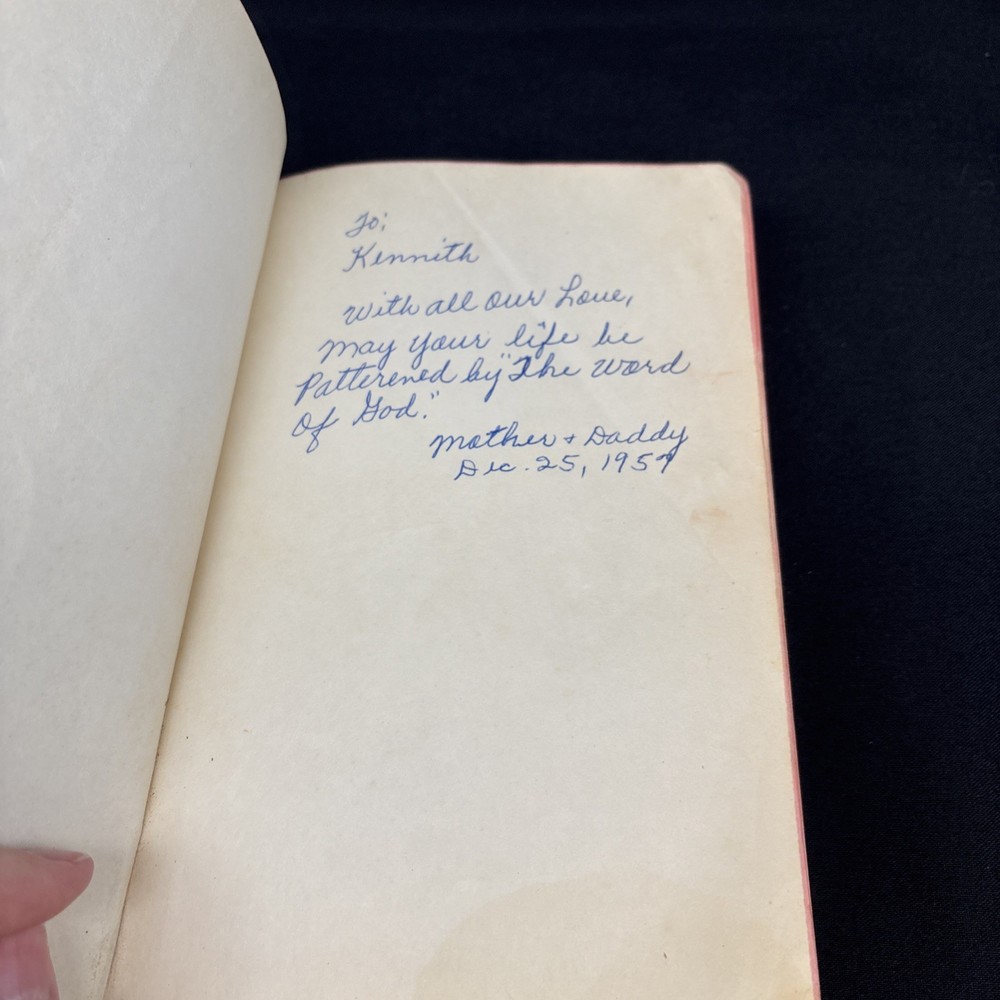 To:
Kennith
With all our Love,
May your life be
Patterened by "The Word
Of God."
Mother + Daddy
Dec. 25, 1957